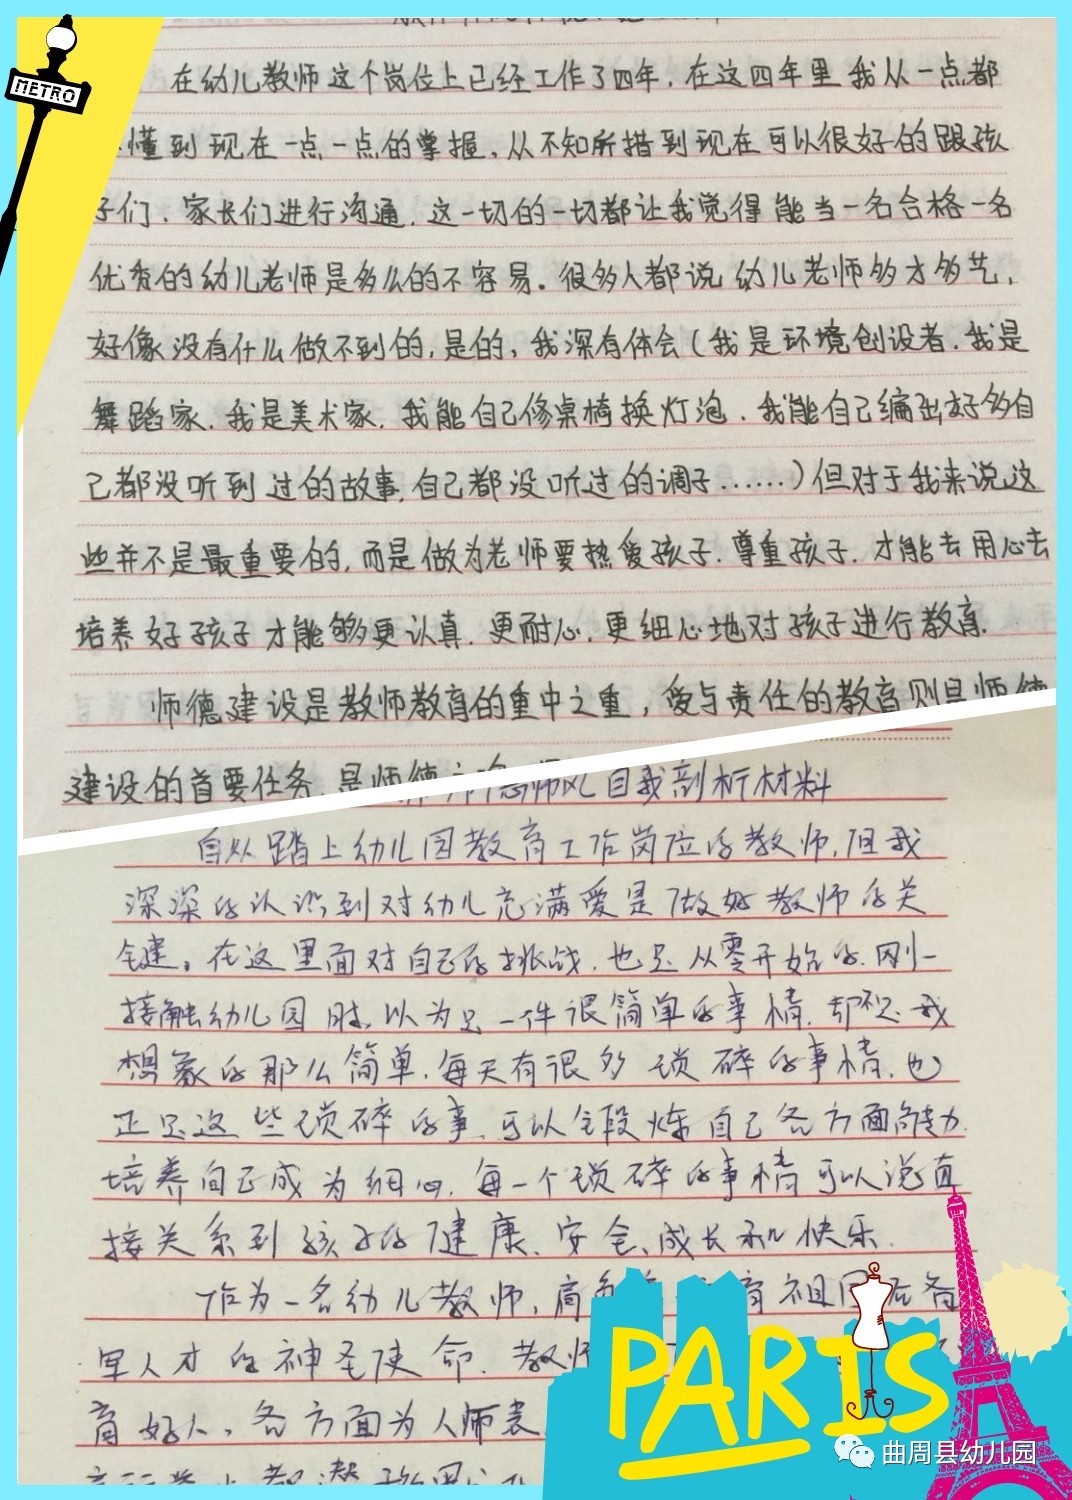 METRO
在幼儿教师这个岗位上已经工作了四年,在这四年里我从一点都
懂到现在一点一点的掌握,从不知所措到现在可以很好的跟孩
子们、家长们进行沟通,这一切的一切都让我觉得能当一名合格一名
优秀的幼儿老师是多么的不容易。很多人都说幼儿老师多才多艺,
好像没有什么做不到的,是的,我深有体会(我是环境创设者.我是
舞蹈家.我是美术家.我能自己修桌椅换灯泡.我能自己编出好多自
己都没听到过的故事,自己都没听过的调子……)但对于我来说这
些并不是最重要的,而是做为老师要热爱孩子.尊重孩子.才能去用心去
培养好孩子才能够更认真.更耐心.更细心地对孩子进行教育.
师德建设是教师教育的重中之重,爱与责任的教育则是师德
建设的首要任务,是师德
师风自我剖析材料
自从踏上幼儿园教育工作岗位的教师,但我
深深的认识到对幼儿充满爱是做好教师的关
键。在这里面对自己的挑战.也是从零开始的.刚一
接触幼儿园时,以为是一件很简单的事情.却不是我
想象的那么简单.每天有很多琐碎的事情.也
正是这些琐碎的事.可以锻炼自己各方面能力.
培养自己成为细心.每一个琐碎的事情可以说直
接关系到孩子的健康、安全、成长和快乐.
作为一名幼儿教师,肩负着 育祖国后备
军人才的神圣使命.教师
育好人,各方面为人师表
PARIS
曲周县幼儿园